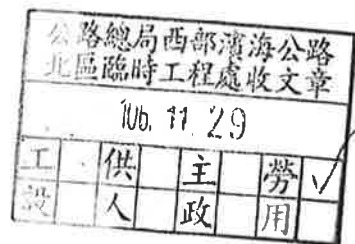 公路總局西部濱海公路
北區臨時工程處收文章
106. 11. 29
工 供 主 勞 ✓
設 人 政 用